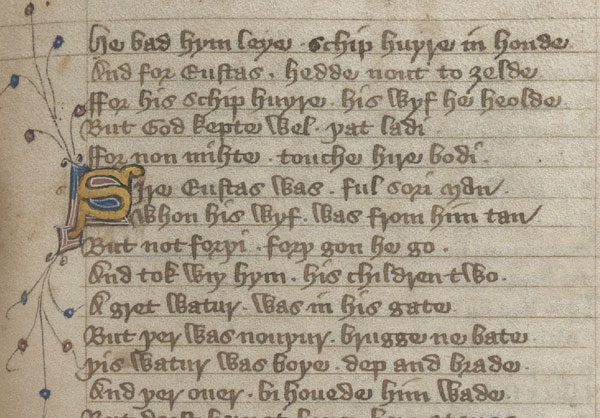 He bad hym leye · schip huyre in honde
And for Eustas · hedde nout to ȝelde
Ffor his schip huyre · his wyf he heolde
But God kepte wel · þat ladi
Ffor non mihte · touche hire bodi ·
Sire Eustas was · ful sori man
Whon his wyf · was from him tan
But not forþi · forþ gon he go ·
And tok wiþ hym · his children two ·
A gret watur · was in his gate
But þer was nouþur · brugge ne bate
Þis watur was boþe · dep and brade ·
And þer ouer · bi houede him wade ·